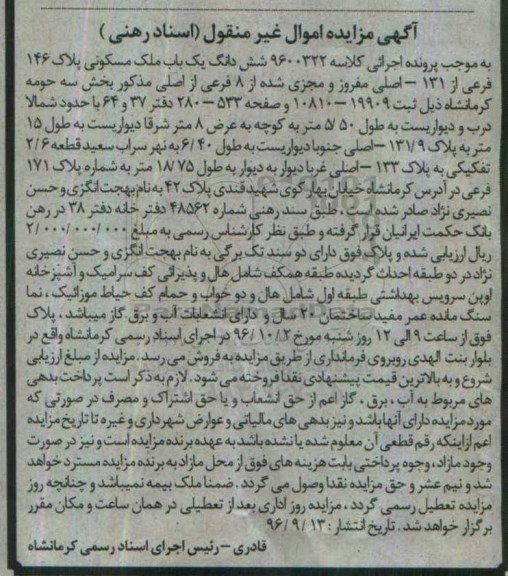 آگهی مزایده اموال غیر منقول (اسناد رهنی)
به موجب پرونده اجرائی کلاسه ۹۶۰۰۳۲۲ شش دانگ یک باب ملک مسکونی پلاک ۱۴۶
فرعی از ۱۳۱ – اصلی مفروز و مجزی شده از ۸ فرعی از اصلی مذکور بخش سه حومه
کرمانشاه ذیل ثبت ۱۹۹۰۹ – ۱۰۸۱۰ و صفحه ۵۳۳ – ۲۸۰ دفتر ۳۷ و ۶۴ با حدود شمالا
درب و دیواریست به طول ۵/۵۰ متر به کوچه به عرض ۸ متر شرقا دیواریست به طول ۱۵
متر به پلاک ۱۳۱/۹ – اصلی جنوبا دیواریست به طول ۶/۴۰ به نهر سراب سعید قطعه ۲/۶
تفکیکی به پلاک ۱۳۳ – اصلی غربا دیوار به دیوار به طول ۱۸/۷۵ متر به شماره پلاک ۱۷۱
فرعی در آدرس کرمانشاه خیابان بهار کوی شهید قندی پلاک ۴۲ به نام بهجت انگزی و حسن
نصیری نژاد صادر شده است ، طبق سند رهنی شماره ۴۸۵۶۲ دفتر خانه دفتر ۳۸ در رهن
بانک حکمت ایرانیان قرار گرفته و طبق نظر کارشناس رسمی به مبلغ ۲/۰۰۰/۰۰۰/۰۰۰
ریال ارزیابی شده و پلاک فوق دارای دو سند تک برگی به نام بهجت انگزی و حسن نصیری
نژاد در دو طبقه احداث گردیده طبقه همکف شامل هال و پذیرائی کف سرامیک و آشپزخانه
اوپن سرویس بهداشتی طبقه اول شامل هال و دو خواب و حمام کف حیاط موزائیک ، نما
سنگ مانده عمر مفید ساختمان ۲۰ سال و دارای انشعابات آب و برق گاز میباشد ، پلاک
فوق از ساعت ۹ الی ۱۲ روز شنبه مورخ ۹۶/۱۰/۲ در اجرای اسناد رسمی کرمانشاه واقع در
بلوار بنت الهدی روبروی فرمانداری از طریق مزایده به فروش می رسد . مزایده از مبلغ ارزیابی
شروع و به بالاترین قیمت پیشنهادی نقدا فروخته می شود . لازم به ذکر است پرداخت بدهی
های مربوط به آب ، برق ، گاز اعم از حق انشعاب و یا حق اشتراک و مصرف در صورتی که
مورد مزایده دارای آنها باشد و نیز بدهی های مالیاتی و عوارض شهرداری و غیره تا تاریخ مزایده
اعم از اینکه رقم قطعی آن معلوم شده یا نشده باشد به عهده برنده مزایده است و نیز در صورت
وجود مازاد ، وجوه پرداختی بابت هزینه های فوق از محل مازاد به برنده مزایده مسترد خواهد
شد و نیم عشر و حق مزایده نقدا وصول می گردد . ضمنا ملک بیمه نمیباشد و چنانچه روز
مزایده تعطیل رسمی گردد ، مزایده روز اداری بعد از تعطیلی در همان ساعت و مکان مقرر
برگزار خواهد شد . تاریخ انتشار : ۹۶/۹/۱۳
قادری – رئیس اجرای اسناد رسمی کرمانشاه